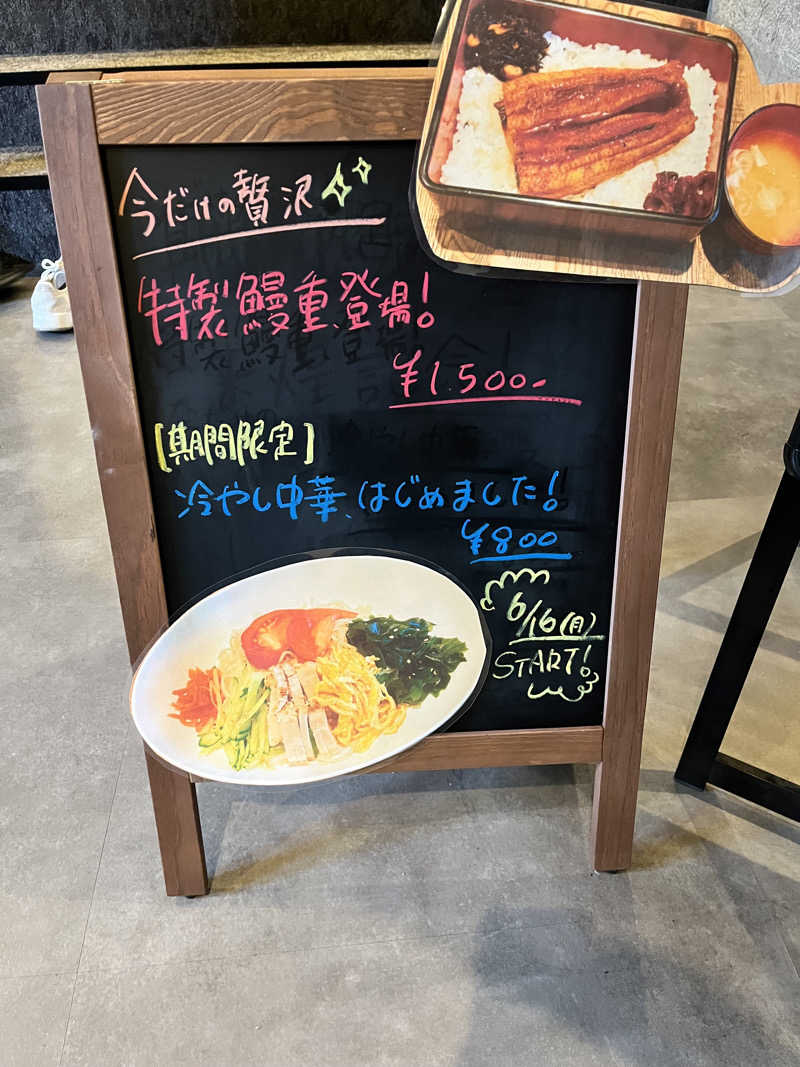 今だけの贅沢
特製鰻重、登場!
¥1.500-
[期間限定]
冷やし中華、はじめました!
¥800
6/16(月)
START!